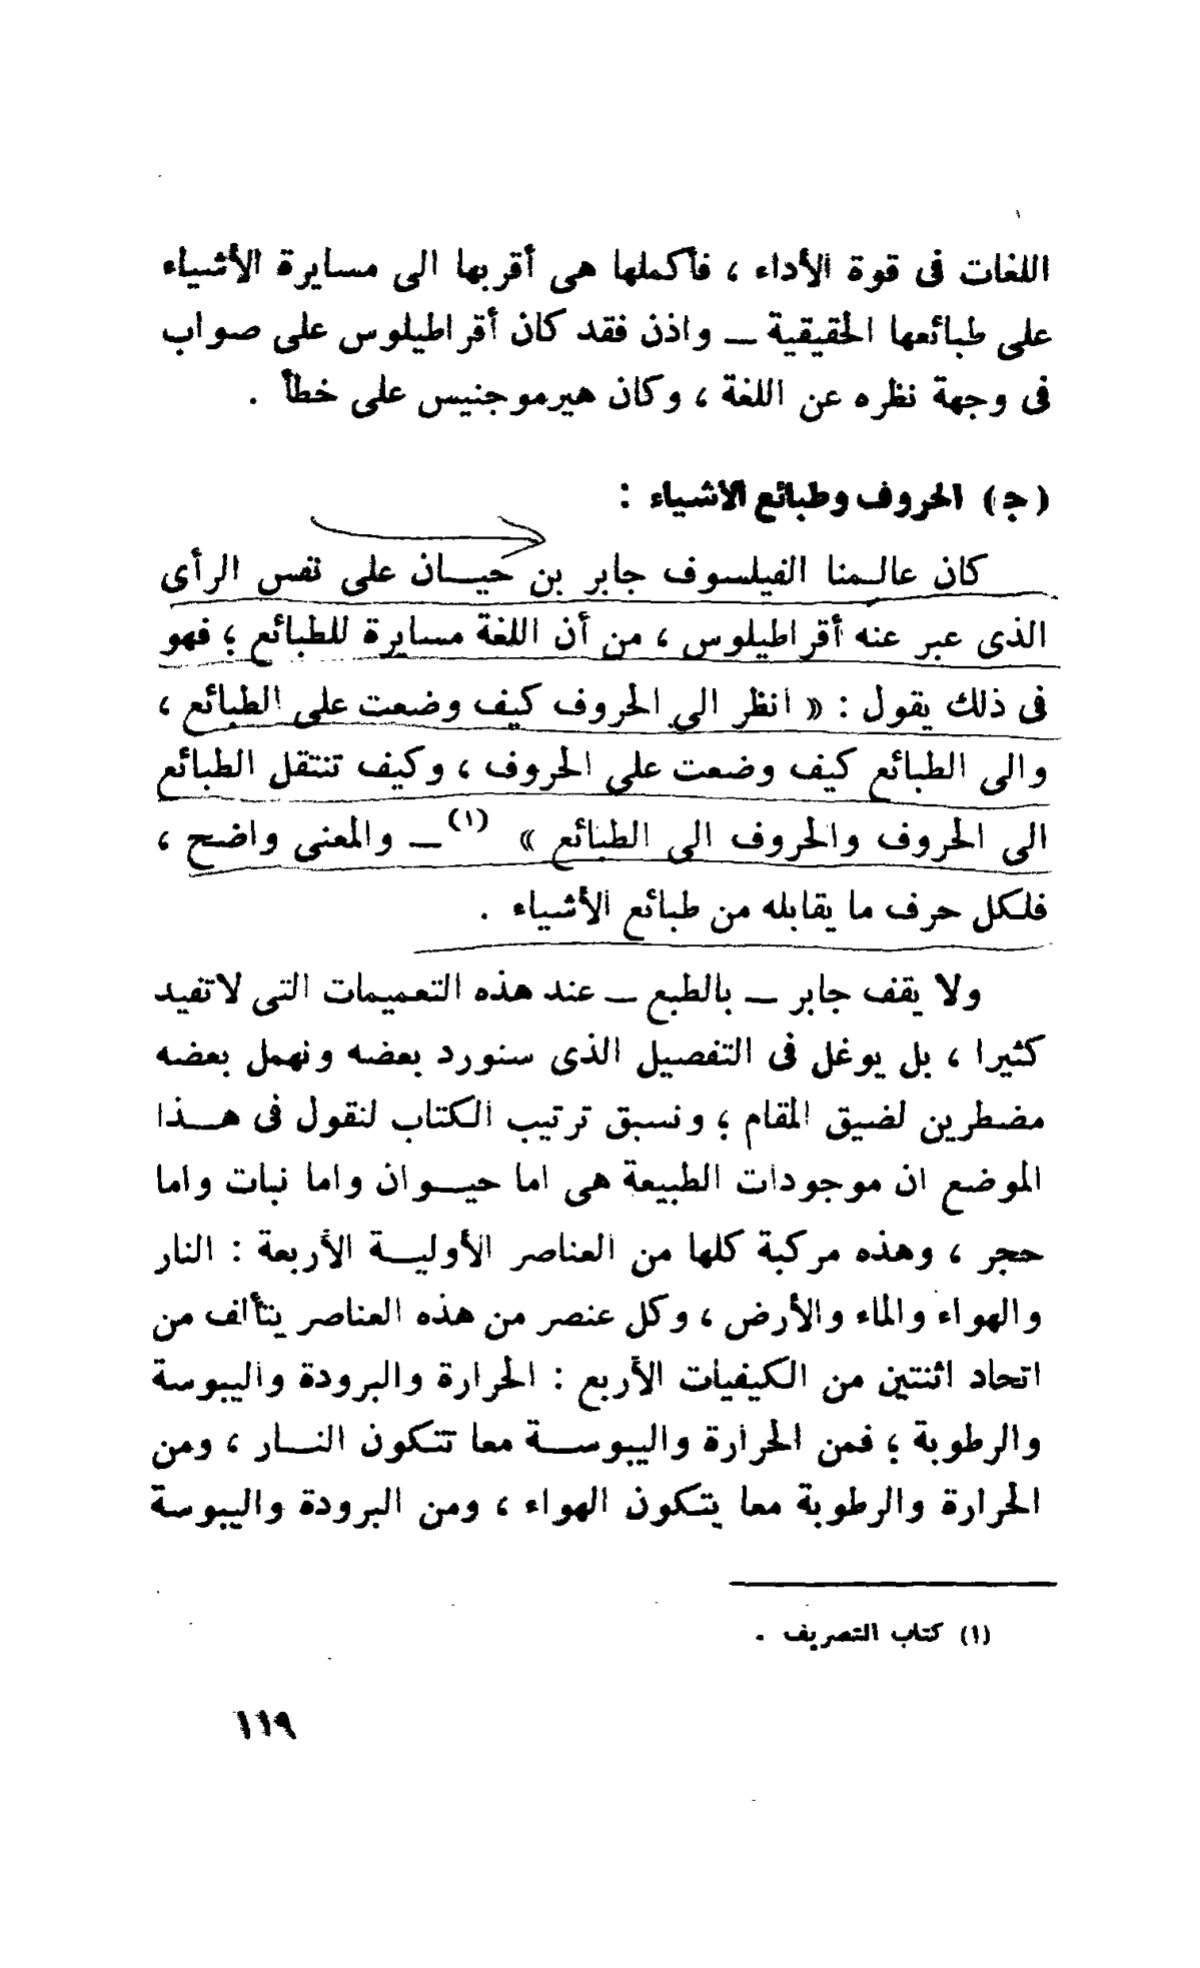 اللغات فى قوة الأداء ، فأكملها هى أقربها الى مسايرة الأشياء
على طبائعها الحقيقية ــ واذن فقد كان أقراطيلوس على صواب
فى وجهة نظره عن اللغة ، وكان هيرموجنيس على خطأ .
(ج) الحروف وطبائع الأشياء :
كان عالمنا الفيلسوف جابر بن حيــان على نفس الرأى
الذى عبر عنه أقراطيلوس ، من أن اللغة مسايرة للطبائع ؛ فهو
فى ذلك يقول : « انظر الى الحروف كيف وضعت على الطبائع ،
والى الطبائع كيف وضعت على الحروف ، وكيف تنتقل الطبائع
الى الحروف والحروف الى الطبائع » (١) ــ والمعنى واضح ،
فلكل حرف ما يقابله من طبائع الأشياء .
ولا يقف جابر ــ بالطبع ــ عند هذه التعميمات التى لاتفيد
كثيرا ، بل يوغل فى التفصيل الذى سنورد بعضه ونهمل بعضه
مضطرين لضيق المقام ؛ ونسبق ترتيب الكتاب لنقول فى هــذا
الموضع ان موجودات الطبيعة هى اما حيــوان واما نبات واما
حجر ، وهذه مركبة كلها من العناصر الأوليــة الأربعة : النار
والهواء والماء والأرض ، وكل عنصر من هذه العناصر يتألف من
اتحاد اثنتين من الكيفيات الأربع : الحرارة والبرودة واليبوسة
والرطوبة ؛ فمن الحرارة واليبوســة معا تتكون النــار ، ومن
الحرارة والرطوبة معا يتكون الهواء ، ومن البرودة واليبوسة
(١) كتاب التصريف .
١١٩